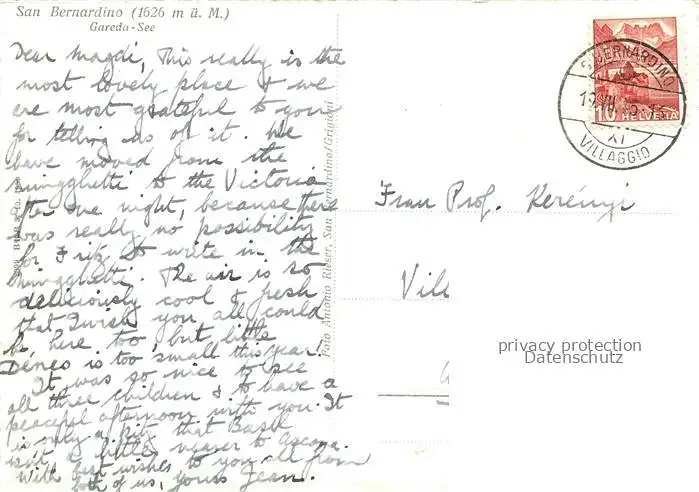 San Bernardino (1626 m ü. M.)
Gareda-See
Dear Magdi, This really is the
most lovely place & we
are most grateful to you
for telling us of it. We
have moved from the
Minghetti to the Victoria
after one night, because there
was really no possibility
for Fritz to write in the
Minghetti. The air is so
deliciously cool & fresh
that I wish you all could
be here too but little
Dénes is too small this year!
It was so nice to see
all three children & to have a
peaceful afternoon with you. It
is only a pity that Basle
isn't a little nearer to Ascona.
With best wishes to you all from
both of us, yours Jean.
Foto Antonio Rieser, San Bernardino/Grigioni
S. BERNARDINO
VILLAGGIO
10 HELVETIA
Frau Prof. Kerényi
Vill
privacy protection
Datenschutz